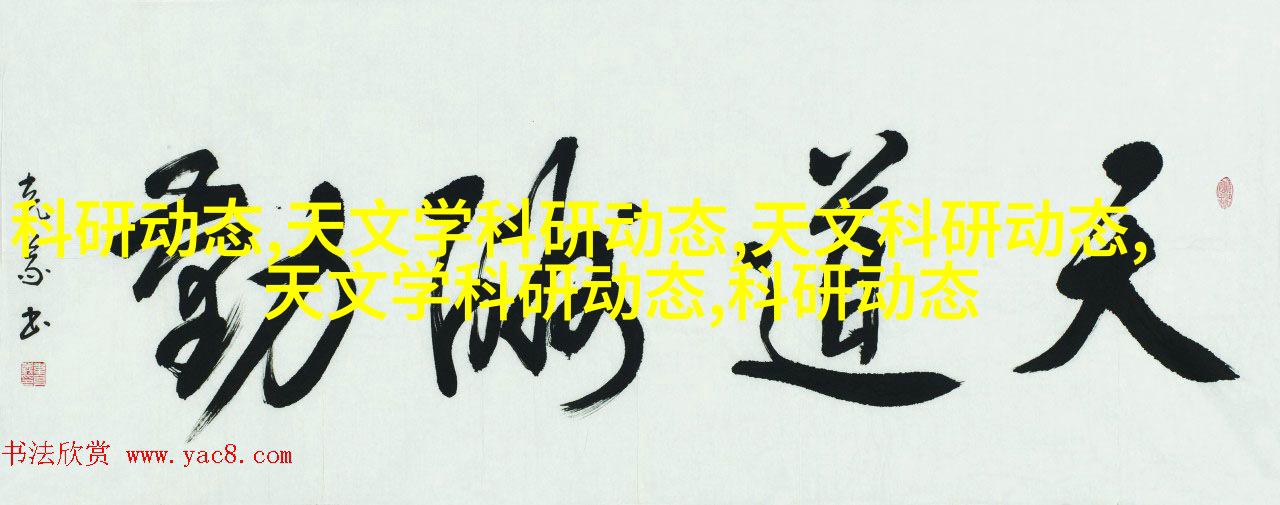 天道酬勤
科研动态,天文学科研动态,天文科研动态,
天文学科研动态,科研动态
书法欣赏 www.yac8.com